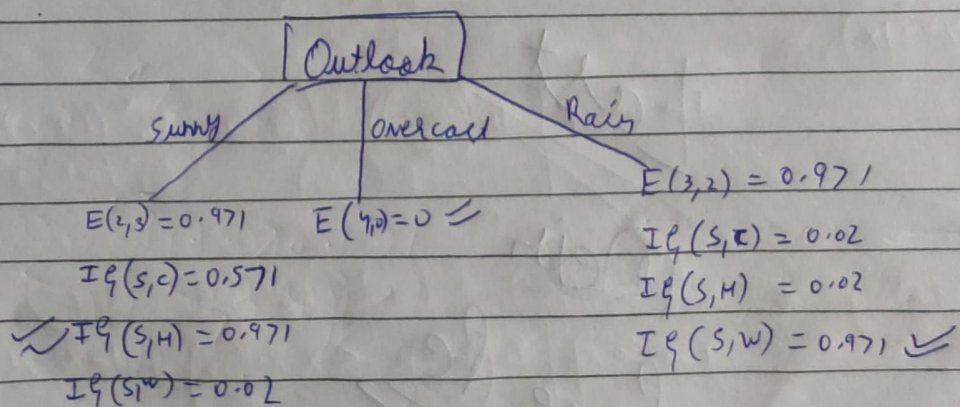 Outlook
Sunny
Overcast
Rain
E(2,3) = 0.971
IG(S,C) = 0.571
IG(S,H) = 0.971
IG(S,W) = 0.02
E(4,0) = 0
E(3,2) = 0.971
IG(S,C) = 0.02
IG(S,H) = 0.02
IG(S,W) = 0.971